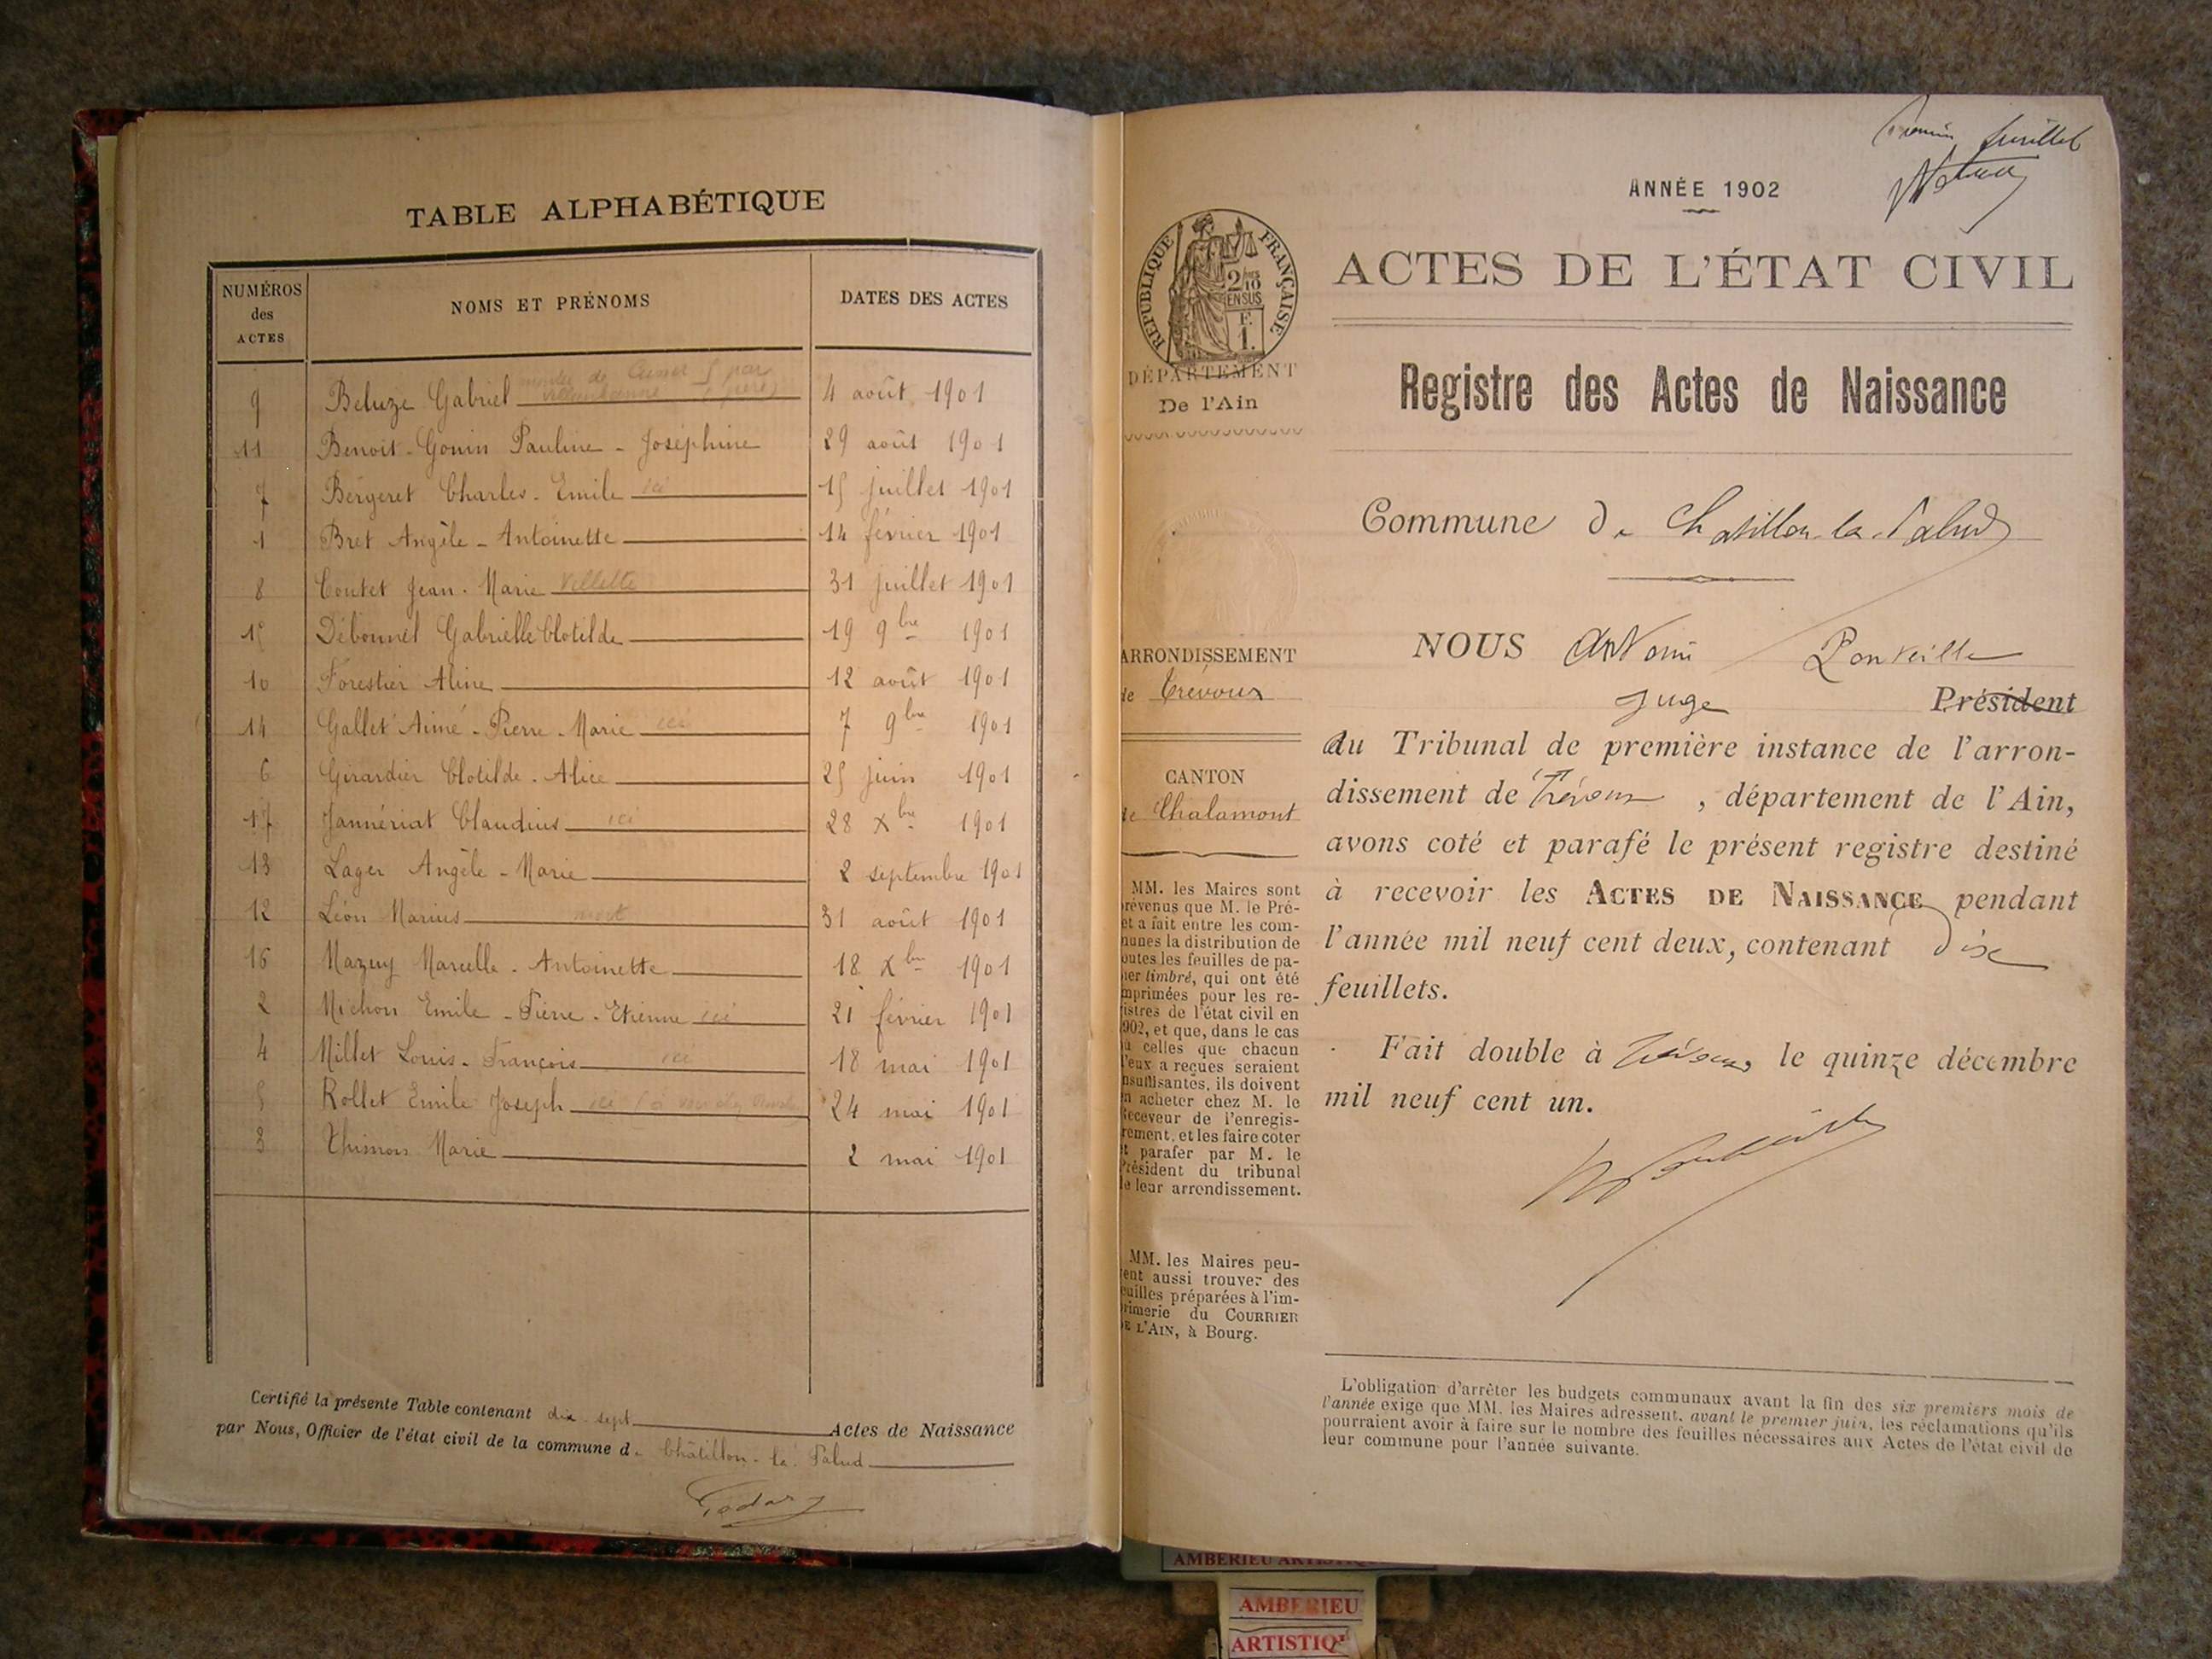 TABLE ALPHABÉTIQUE
NUMÉROS des ACTES NOMS ET PRÉNOMS DATES DES ACTES
9 Beluze Gabriel 4 août 1901
11 Benoit-Gonin Pauline - Joséphine 29 août 1901
7 Bergeret Charles-Emile ici 15 juillet 1901
1 Bret Angèle - Antoinette 14 février 1901
8 Coutet Jean-Marie Villette 31 juillet 1901
15 Débonnel Gabrielle Clotilde 19 9bre 1901
10 Forestier Aline 12 août 1901
14 Gallet Aimé - Pierre - Marie ici 7 9bre 1901
6 Girardier Clotilde - Alice 25 juin 1901
17 Jannériat Claudius ici 28 Xbre 1901
13 Lager Angèle - Marie 2 septembre 1901
12 Léon Marius mort 31 août 1901
16 Mazuy Marcelle - Antoinette 18 Xbre 1901
2 Michon Emile - Pierre - Etienne ici 21 février 1901
4 Millet Louis - François ici 18 mai 1901
5 Rollet Emile Joseph ici 24 mai 1901
3 Thimon Marie 2 mai 1901
Certifié la présente Table contenant dix-sept Actes de Naissance
par Nous, Officier de l'état civil de la commune d. Châtillon-la-Palud
Godar
feuillet
ANNÉE 1902
RÉPUBLIQUE FRANÇAISE
2/10 EN SUS
F. 1.
ACTES DE L'ÉTAT CIVIL
DÉPARTEMENT
De l'Ain
Registre des Actes de Naissance
Commune de Chatillon-la-Palud
ARRONDISSEMENT
de Trévoux
CANTON
de Chalamont
MM. les Maires sont
prévenus que M. le Pré-
et a fait entre les com-
munes la distribution de
outes les feuilles de pa-
ier timbré, qui ont été
mprimées pour les re-
istres de l'état civil en
902, et que, dans le cas
ù celles que chacun
l'eux a reçues seraient
nsuffisantes, ils doivent
n acheter chez M. le
Receveur de l'enregis-
rement, et les faire coter
t parafer par M. le
Président du tribunal
de leur arrondissement.
MM. les Maires peu-
vent aussi trouver des
euilles préparées à l'im-
rimerie du COURRIER
DE L'AIN, à Bourg.
NOUS Antonin
juge Président
du Tribunal de première instance de l'arron-
dissement de Trévoux, département de l'Ain,
avons coté et parafé le présent registre destiné
à recevoir les ACTES DE NAISSANCE pendant
l'année mil neuf cent deux, contenant Dix
feuillets.
Fait double à Trévoux, le quinze décembre
mil neuf cent un.
L'obligation d'arrêter les budgets communaux avant la fin des six premiers mois de
l'année exige que MM. les Maires adressent, avant le premier juin, les réclamations qu'ils
pourraient avoir à faire sur le nombre des feuilles nécessaires aux Actes de l'état civil de
leur commune pour l'année suivante.
AMBERIEU ARTISTIQ
AMBERIEU
ARTISTIQ